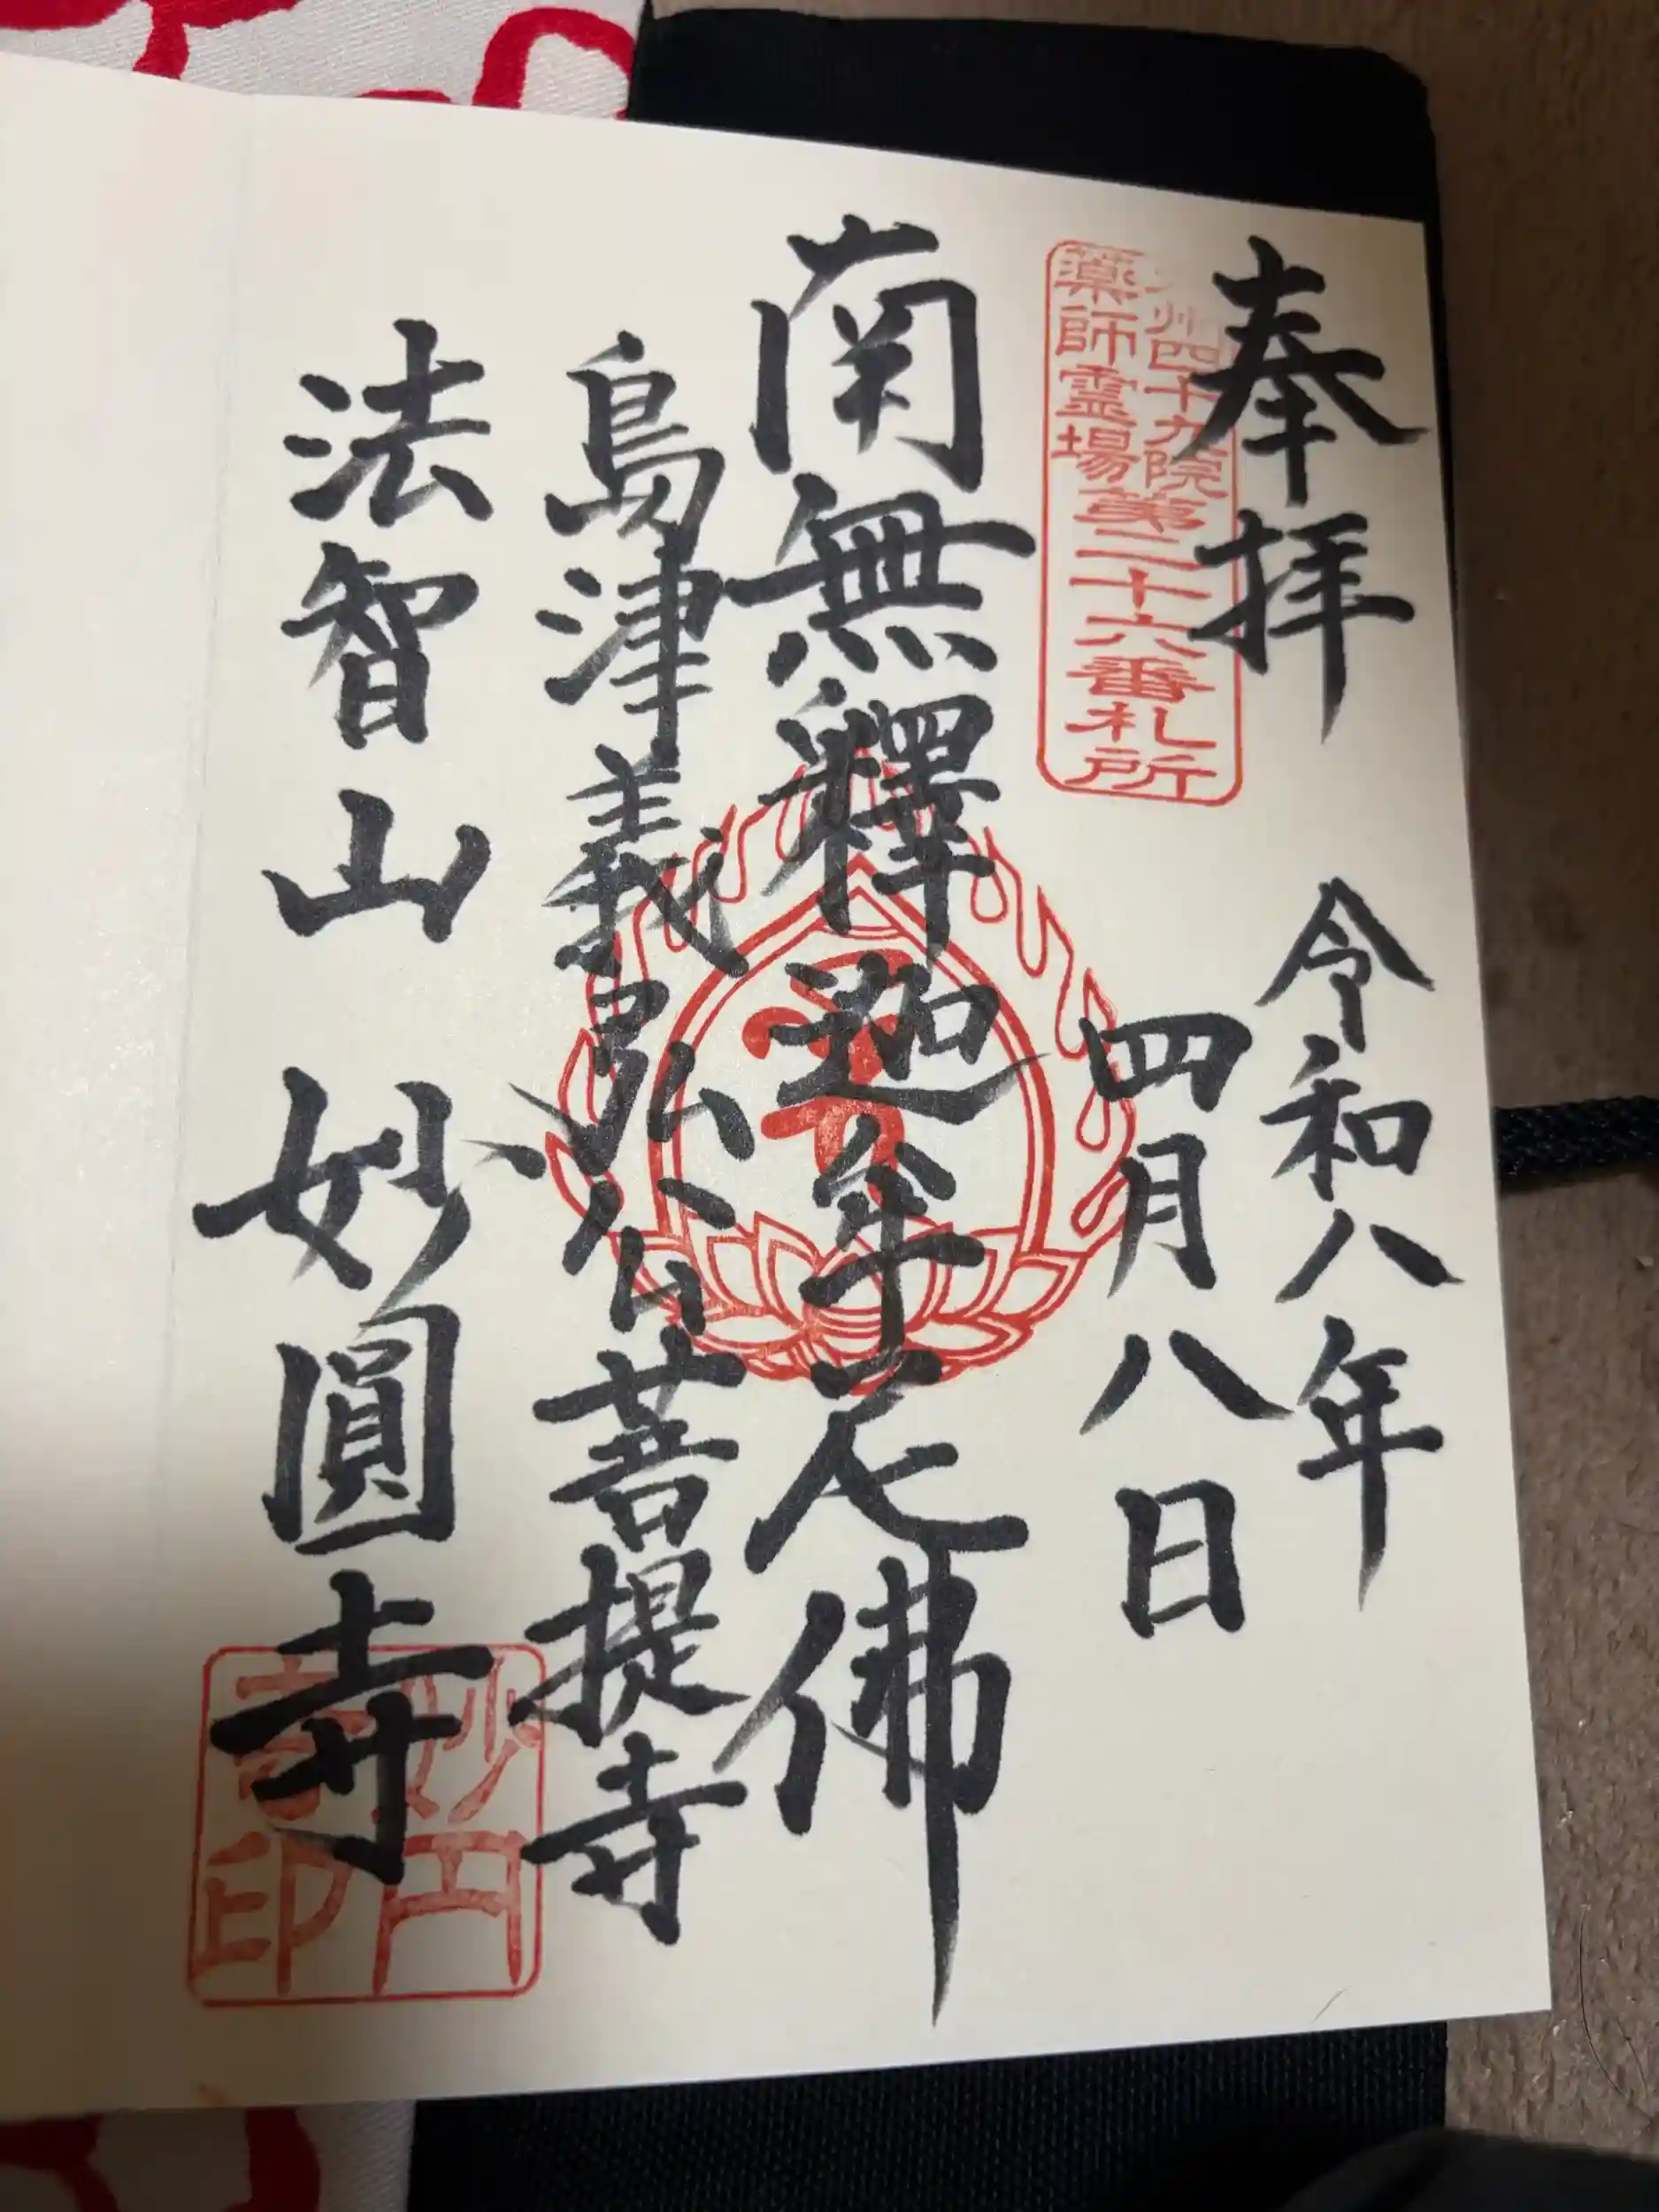 奉拝
令和八年
四月八日
州四十九院
薬師霊場
第二十六番札所
南無釋迦牟尼佛
島津義弘公菩提寺
法智山 妙圓寺
妙円
寺印